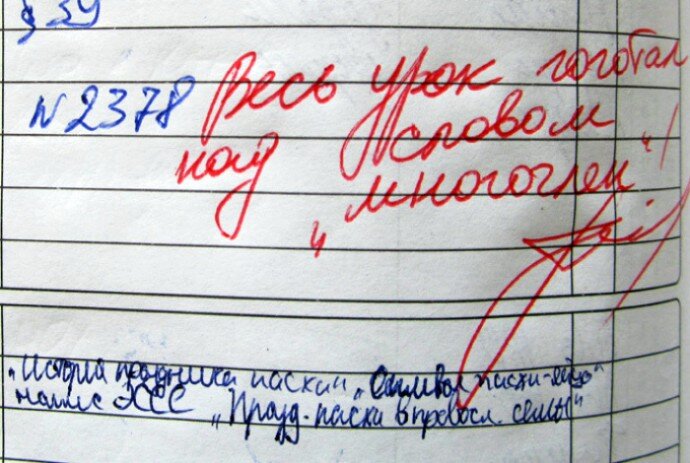 § 39
N 2378 Весь урок гоготал
над словом
„многочлен"!
„История праздника пасхи" „Символ пасхи-яйцо"
„Празд. пасхи в правосл. семье"